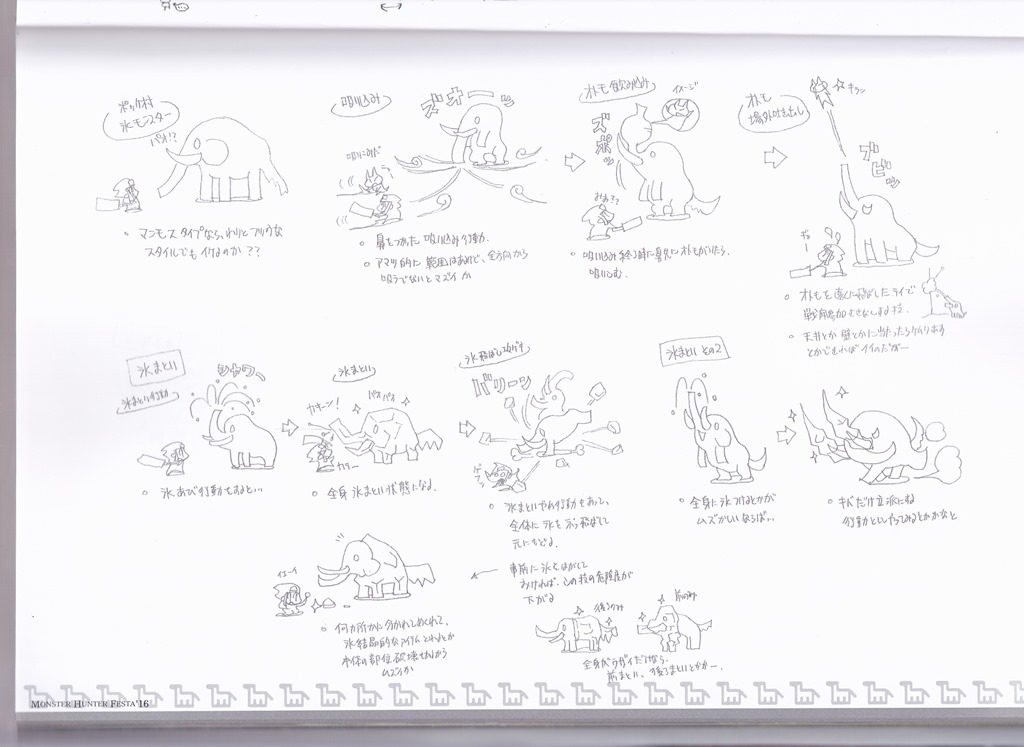 ポッケ村
氷モンスター
パオ!?
・マンモスタイプなら、わりとフツウな
スタイルでもイケるのか??
吸い込み
ズオーッ
・鼻をつかった吸い込み行動。
・アマツ的に範囲はあるけど、全方向から
吸うでないとマズイか
オトモ飲み込み
イメージ
ズポッ
・吸い込み終了時に鼻先にオトモがいたら、
吸い込む。
オトモ
場外吐き出し
キラン
ズビッ
・オトモを遠くに飛ばしたテイで
・天井とか壁とかに当たったらケムリおす
とかであればイイのだがー
氷まとい
氷まとい行動
シャワー
・氷あび行動をすると…
氷まとい
カキーン!
パオパオ
・全身氷まとい状態になる。
バリーン
・氷まといやめ行動もあって、
全体に氷をぶっ飛ばして
元にもどる。
氷まといその2
・全身に氷つけるとかが
ムズかしいならば…
・キバだけ立派にね
行動といしやってみるとかかなと
事前に氷をはがして
おければ、この技の危険度が
下がる
・何カ所かに分かれてめくれて、
氷結晶的なアイテムとれるとか
本体の部位破壊もあるから
ムズイか
後ろのみ
前のみ
前まとい、後ろまといとかかー。
MONSTER HUNTER FESTA'16